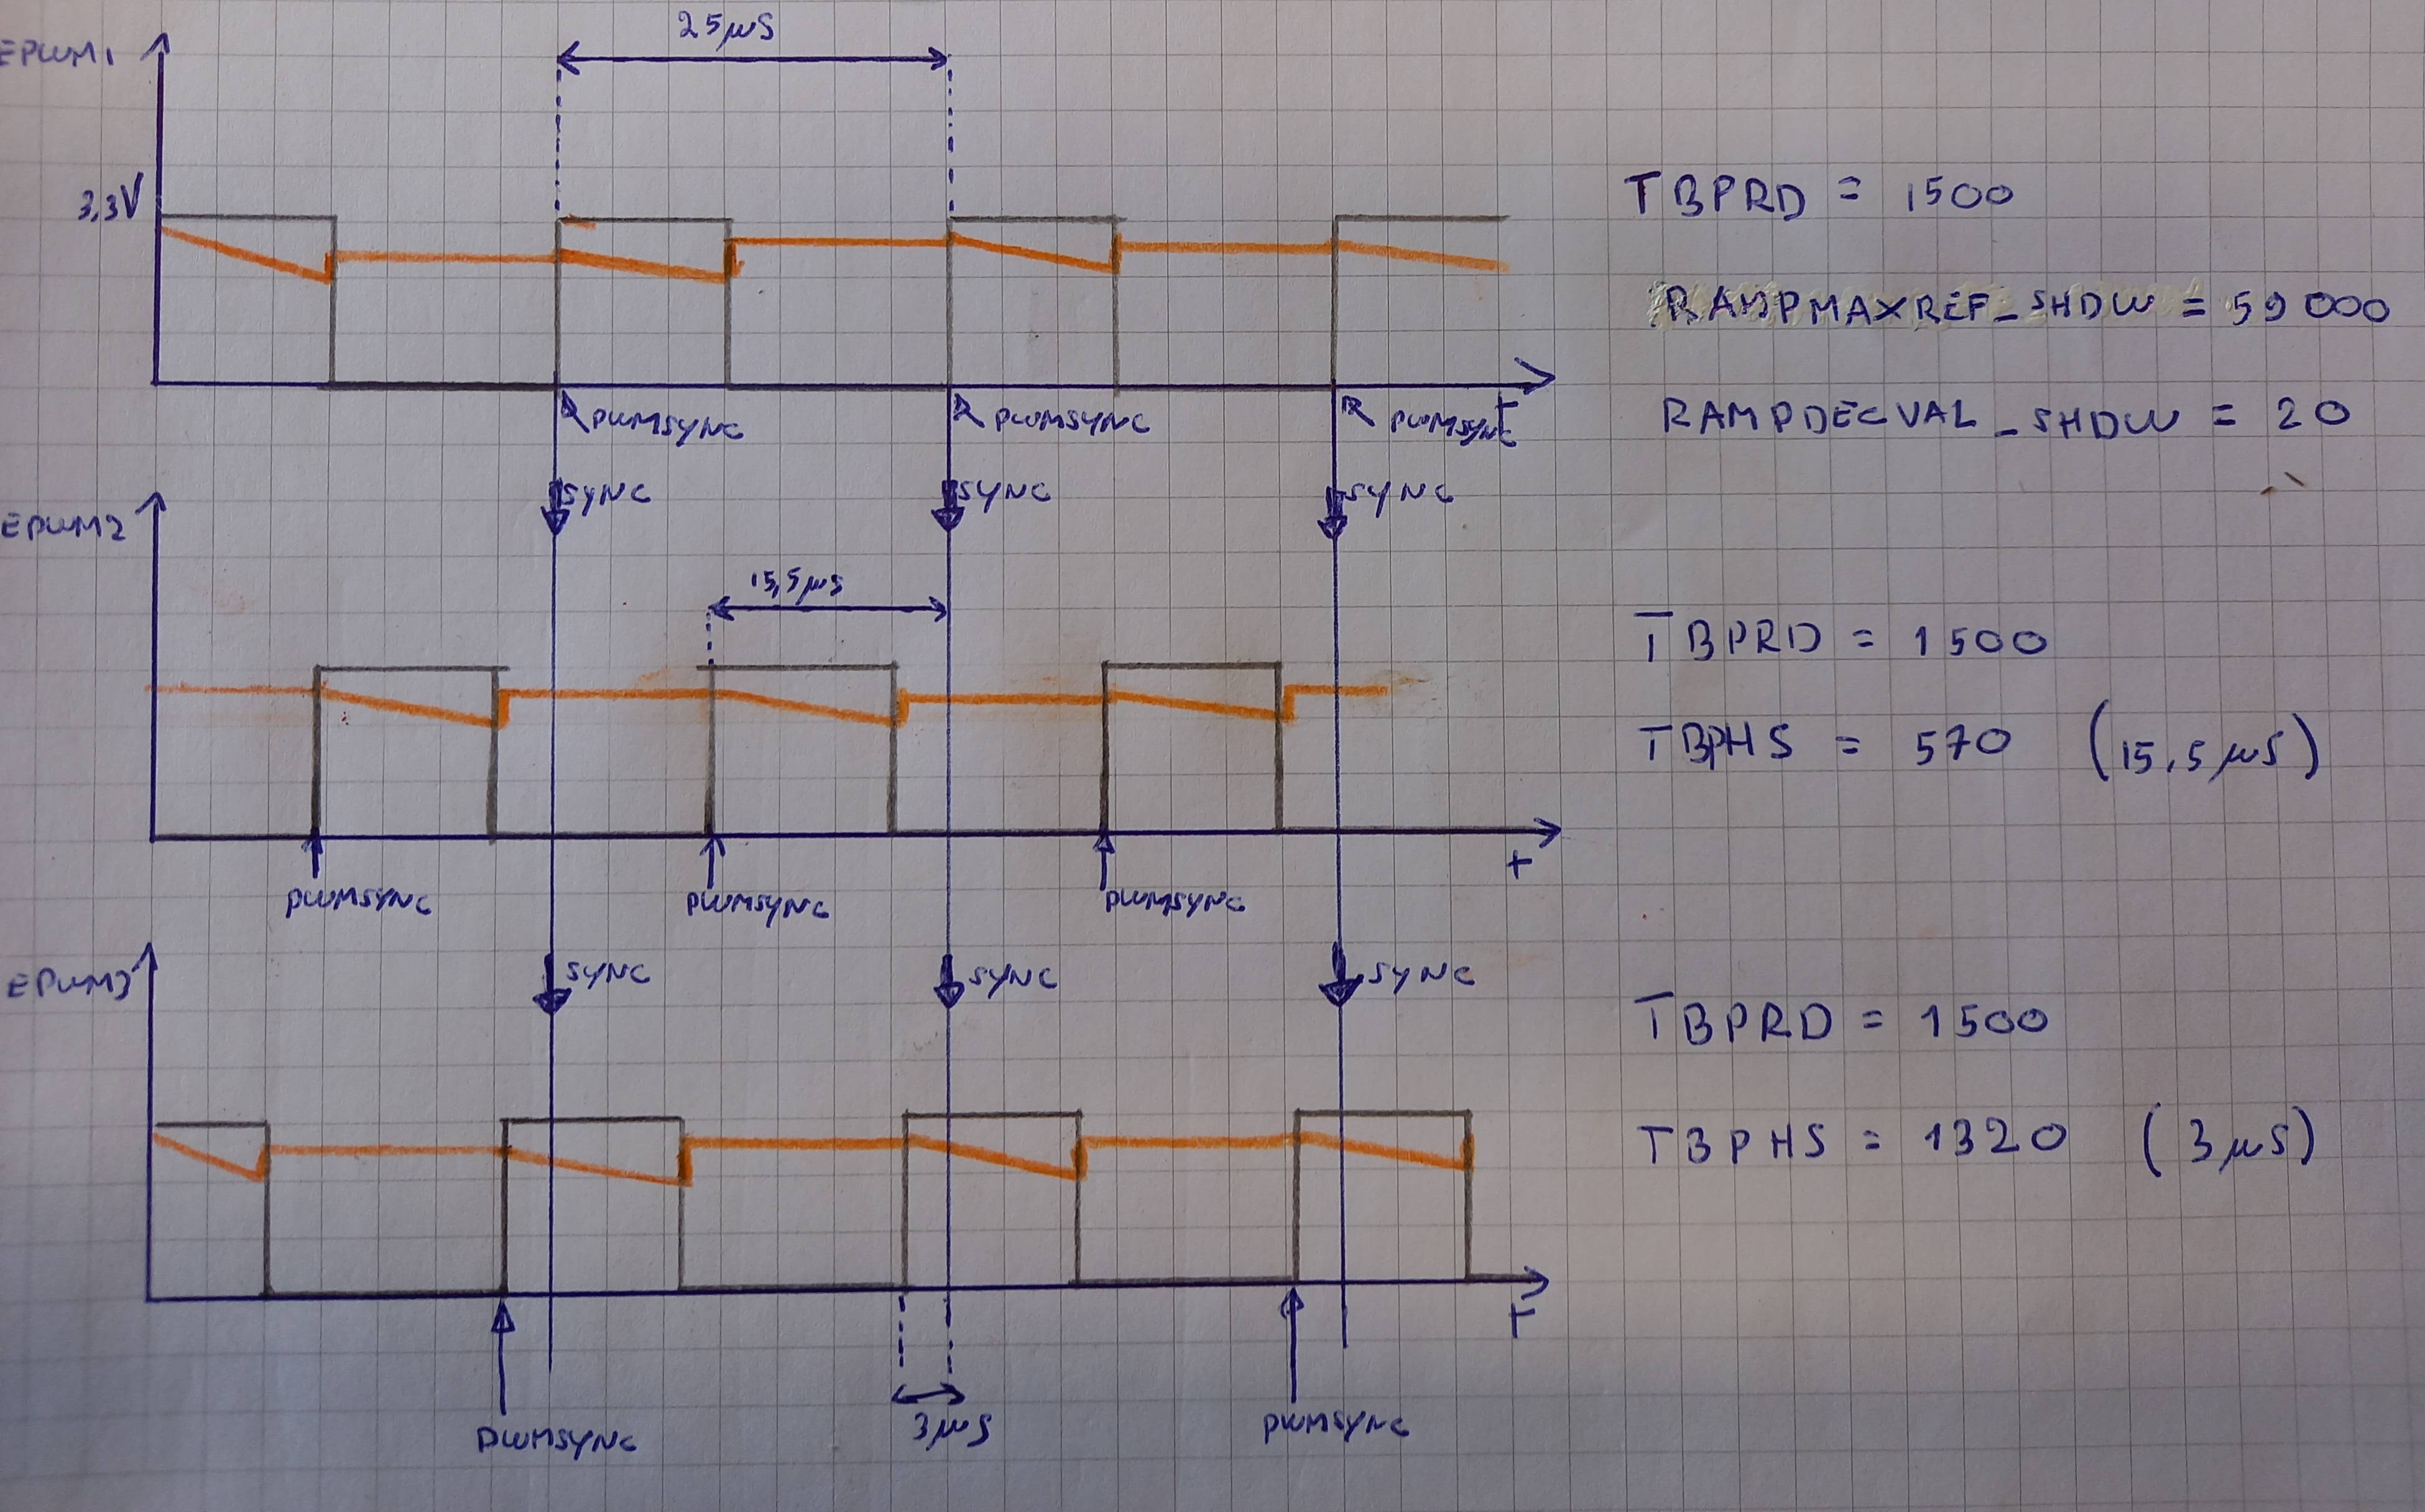 25µS
EPWM1
3,3V
TBPRD = 1500
RAMPMAXREF_SHDW = 59000
RAMPDECVAL_SHDW = 20
PWMSYNC PWMSYNC PWMSYNC
t
SYNC SYNC SYNC
EPWM2
15,5µs
TBPRD = 1500
TBPHS = 570 (15,5µS)
t
PWMSYNC PWMSYNC PWMSYNC
EPWM3
SYNC SYNC SYNC
TBPRD = 1500
TBPHS = 1320 (3µS)
t
3µS
PWMSYNC PWMSYNC